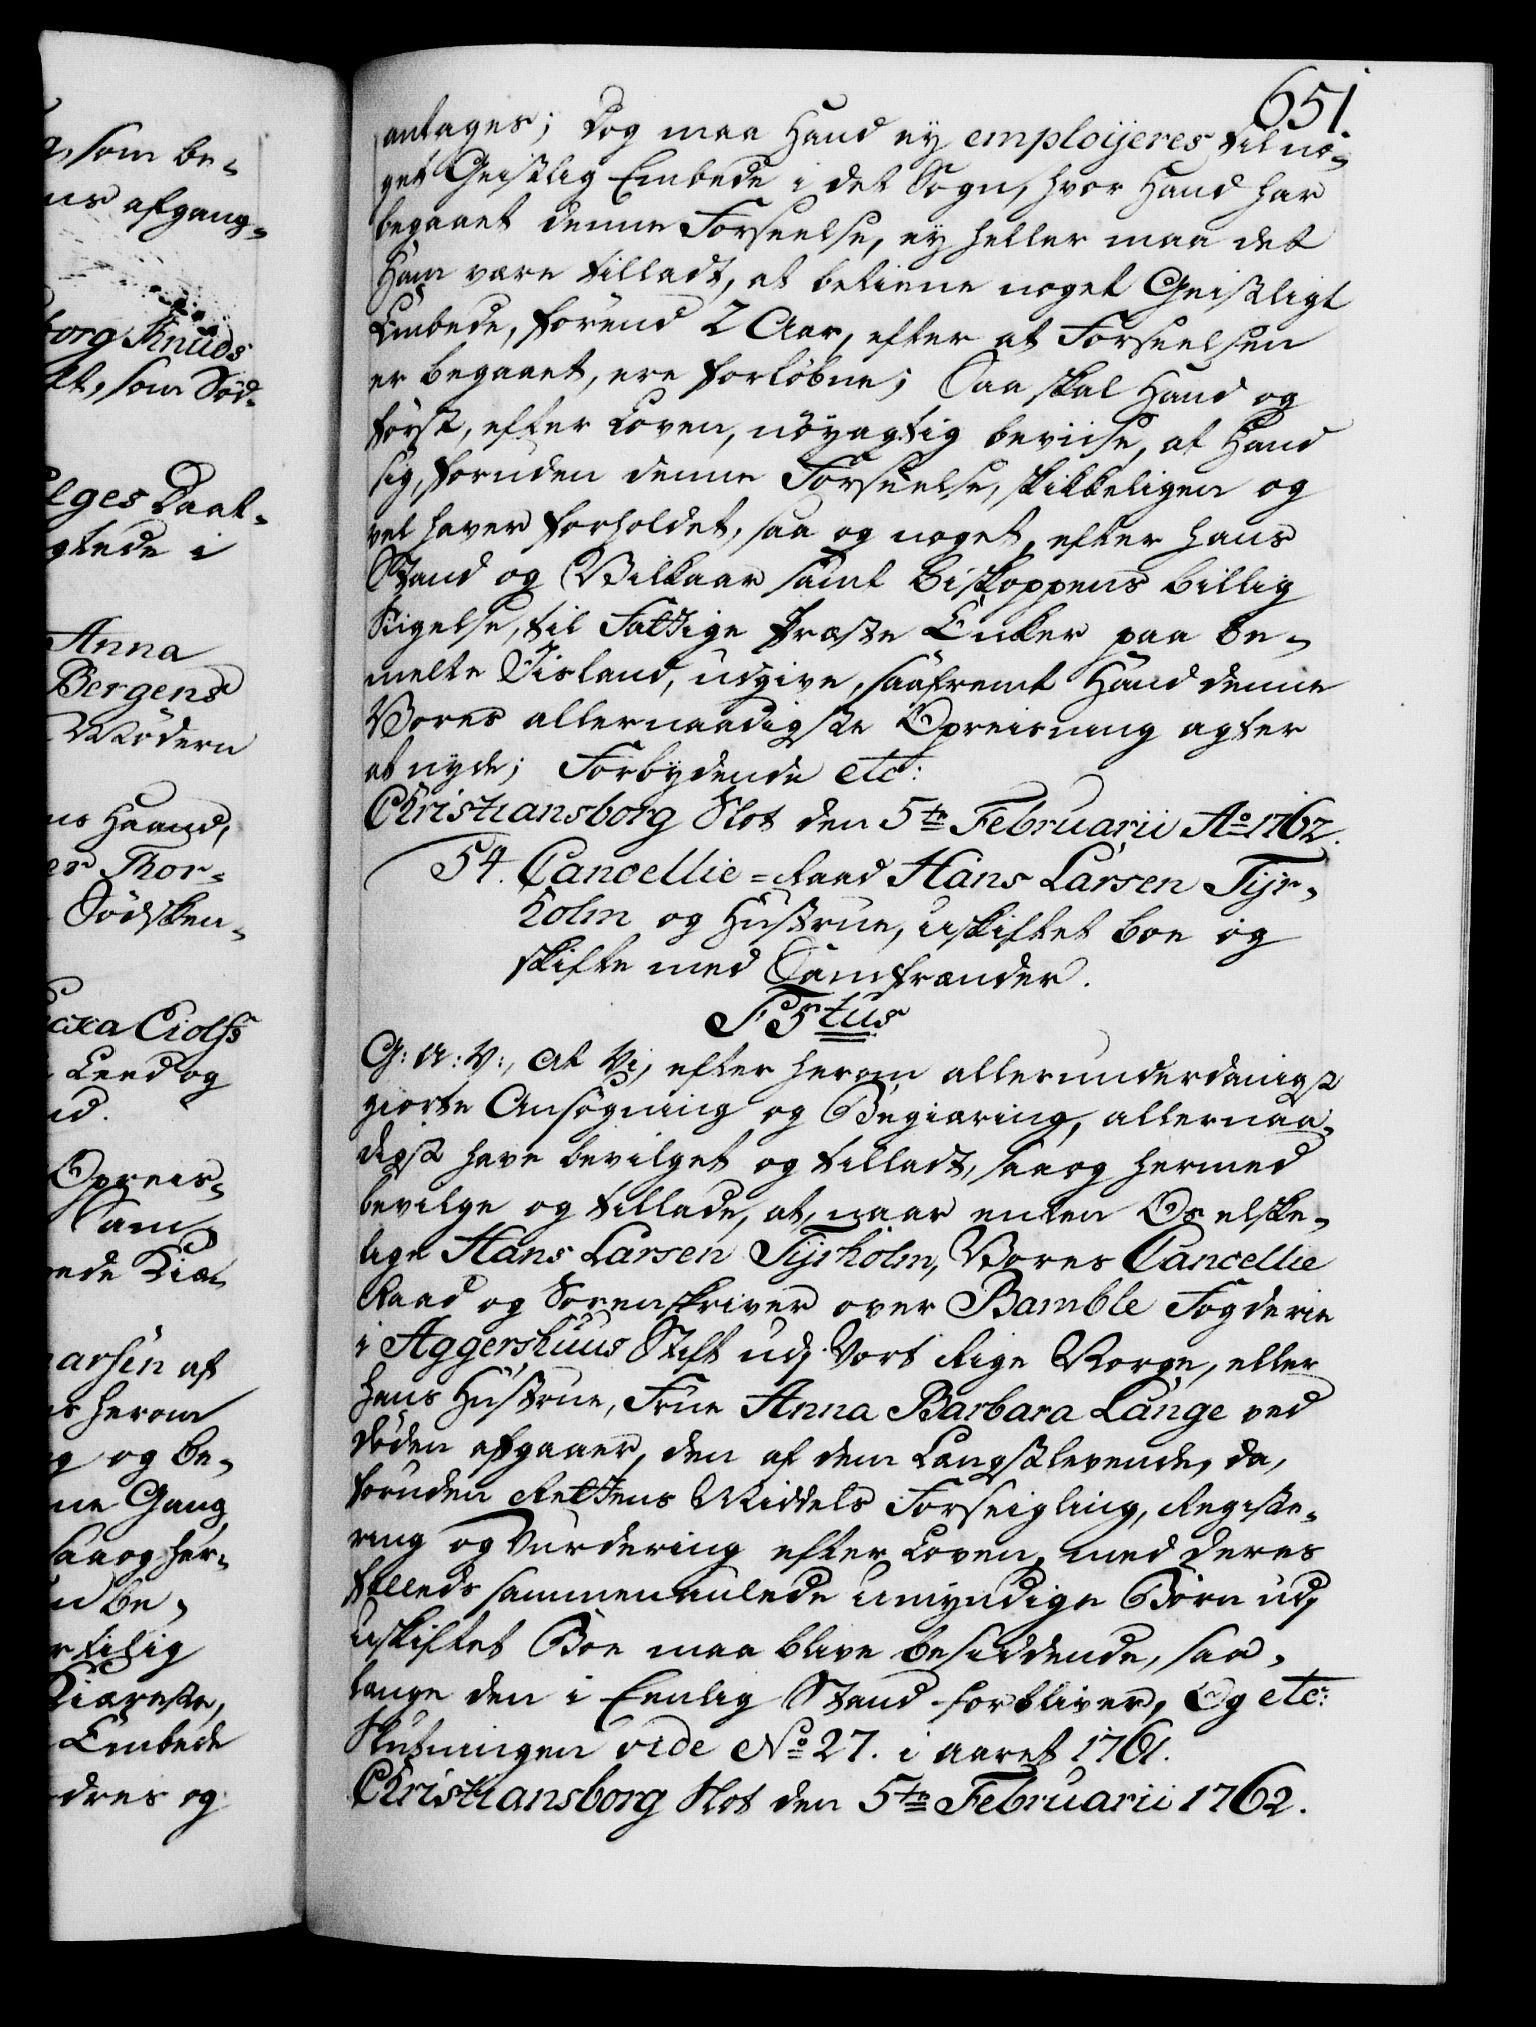 651.
antages; Dog maa Hand ey employeres til no-
get Geistlig Embede i det Sogn, hvor Hand har
begaaet denne Forseelse, ey heller maa det
Ham være tilladt, at betiene noget Geistligt
Embede, førend 2 Aar, efter at Forseelsen
er begaaet, ere forløbne; Saa skal Hand og
først, efter Loven, nøyagtig beviise, at Hand
sig, foruden denne Forseelse, skikkeligen og
vel haver forholdet, saa og noget, efter hans
Stand og Vilkaar samt Biskoppens billig
Sigelse, til Fattige Præste Enker paa be-
melte Iisland, udgive, saafremt Hand denne
Vores allernaadigste Opreisning agter
at nyde; Forbydende etc:
Christiansborg Slot den 5te Februarii Ao 1762.
54. Cancellie-Raad Hans Larsen Tyr-
holm og Hustrue, uskiftet boe og
skifte med Samfrænder.
F5tus
G: A: V:, At Vi, efter herom allerunderdanigst
giorte Ansøgning og Begiæring, allernaa-
digst have bevilget og tilladt, saa og hermed
bevilge og tillade, at, naar enten Os elske-
lige Hans Larsen Tyrholm, Vores Cancellie
Raad og Sorenskriver over Bamble Fogderie
i Aggershuus Stift udj Vort Rige Norge, eller
hans Hustrue, Frue Anna Barbara Lange ved
døden afgaaer, den af dem Længstlevende, da,
foruden Rettens Middels Forseigling, Registe-
ring og Vurdering efter Loven, med deres
fælleds sammenaulede umyndige Børn udj
uskiftet Boe maa blive besiddende, saa-
længe den i Eenlig Stand forbliver, Og etc:
Slutningen vide No 27. i aaret 1761.
Christiansborg Slot den 5te Februarii 1762.
som be-
afgang-
borg Knuds
som Sød-
Daat-
i
Anna
Bergens
Modern
Haand,
Thor-
Sødsken-
Eiolfs
Leed og
Opreis-
Sam-
arsen af
herom
og be-
Gang
saa og her-
be-
tilig
Kiæreste,
Embede
og